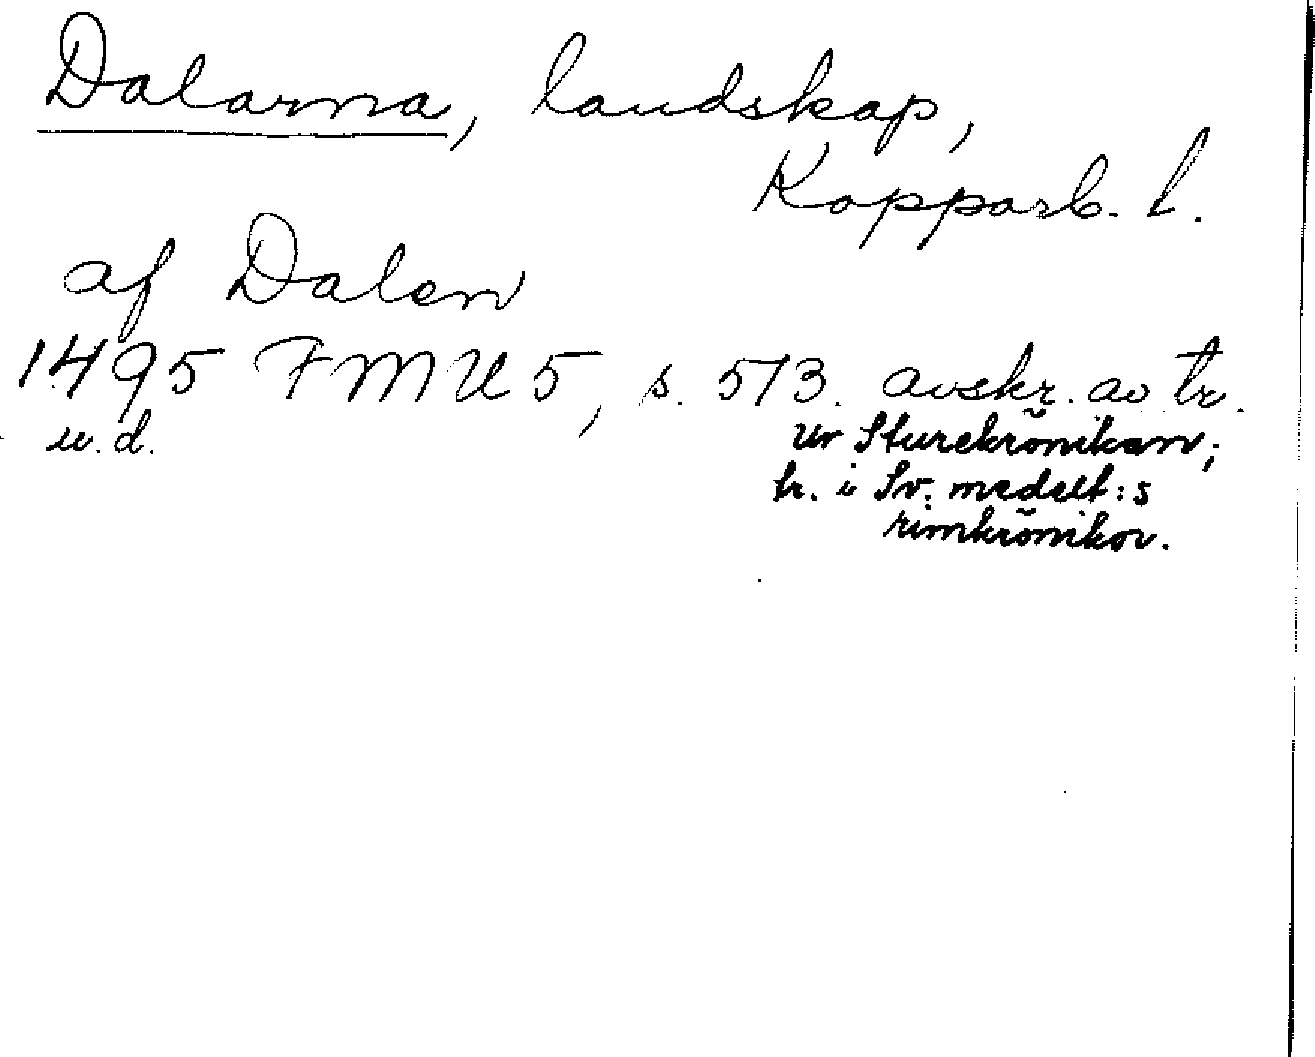 Dalarna, landskap,
Kopparb. l.
af Dalen
1495 FMU 5, s. 573. avskr. av tr.
u. d. ur Sturekrönikan;
tr. i Sv. medelt:s
rimkrönikor.